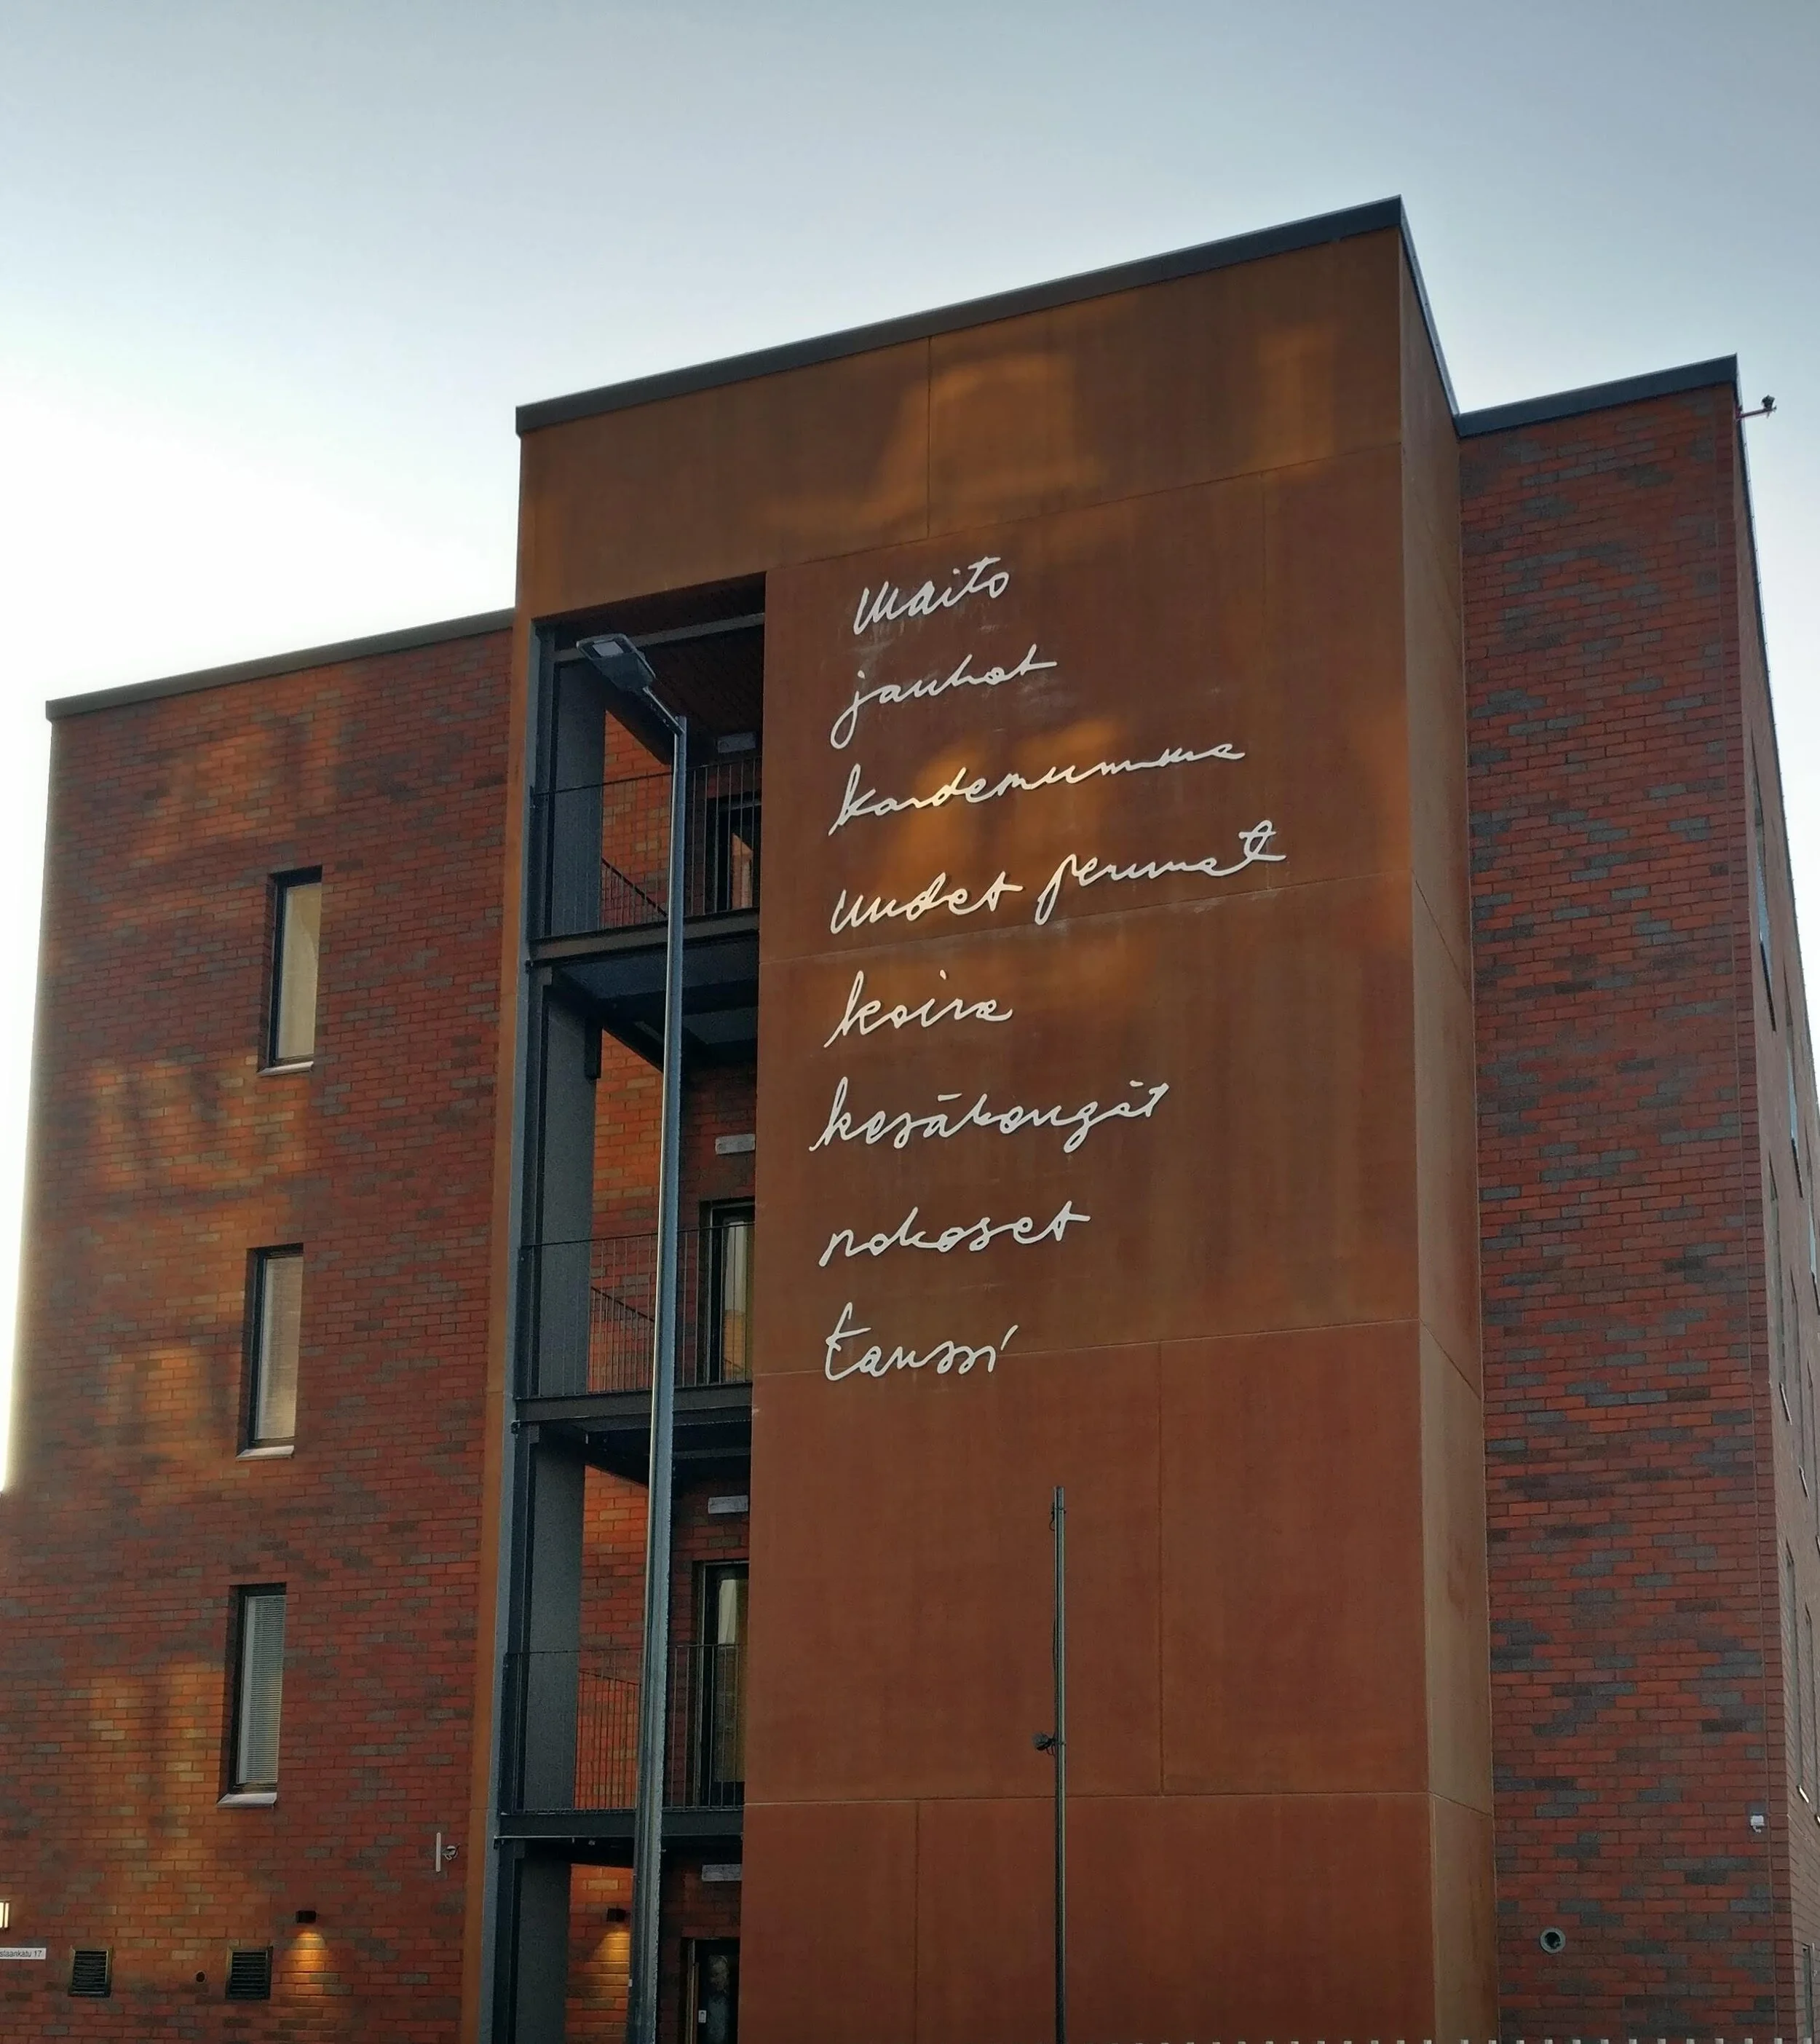 Maito
jauhot
kardemumma
uudet perunat
koira
kesäkengät
nokoset
tanssi
slaankatu 17